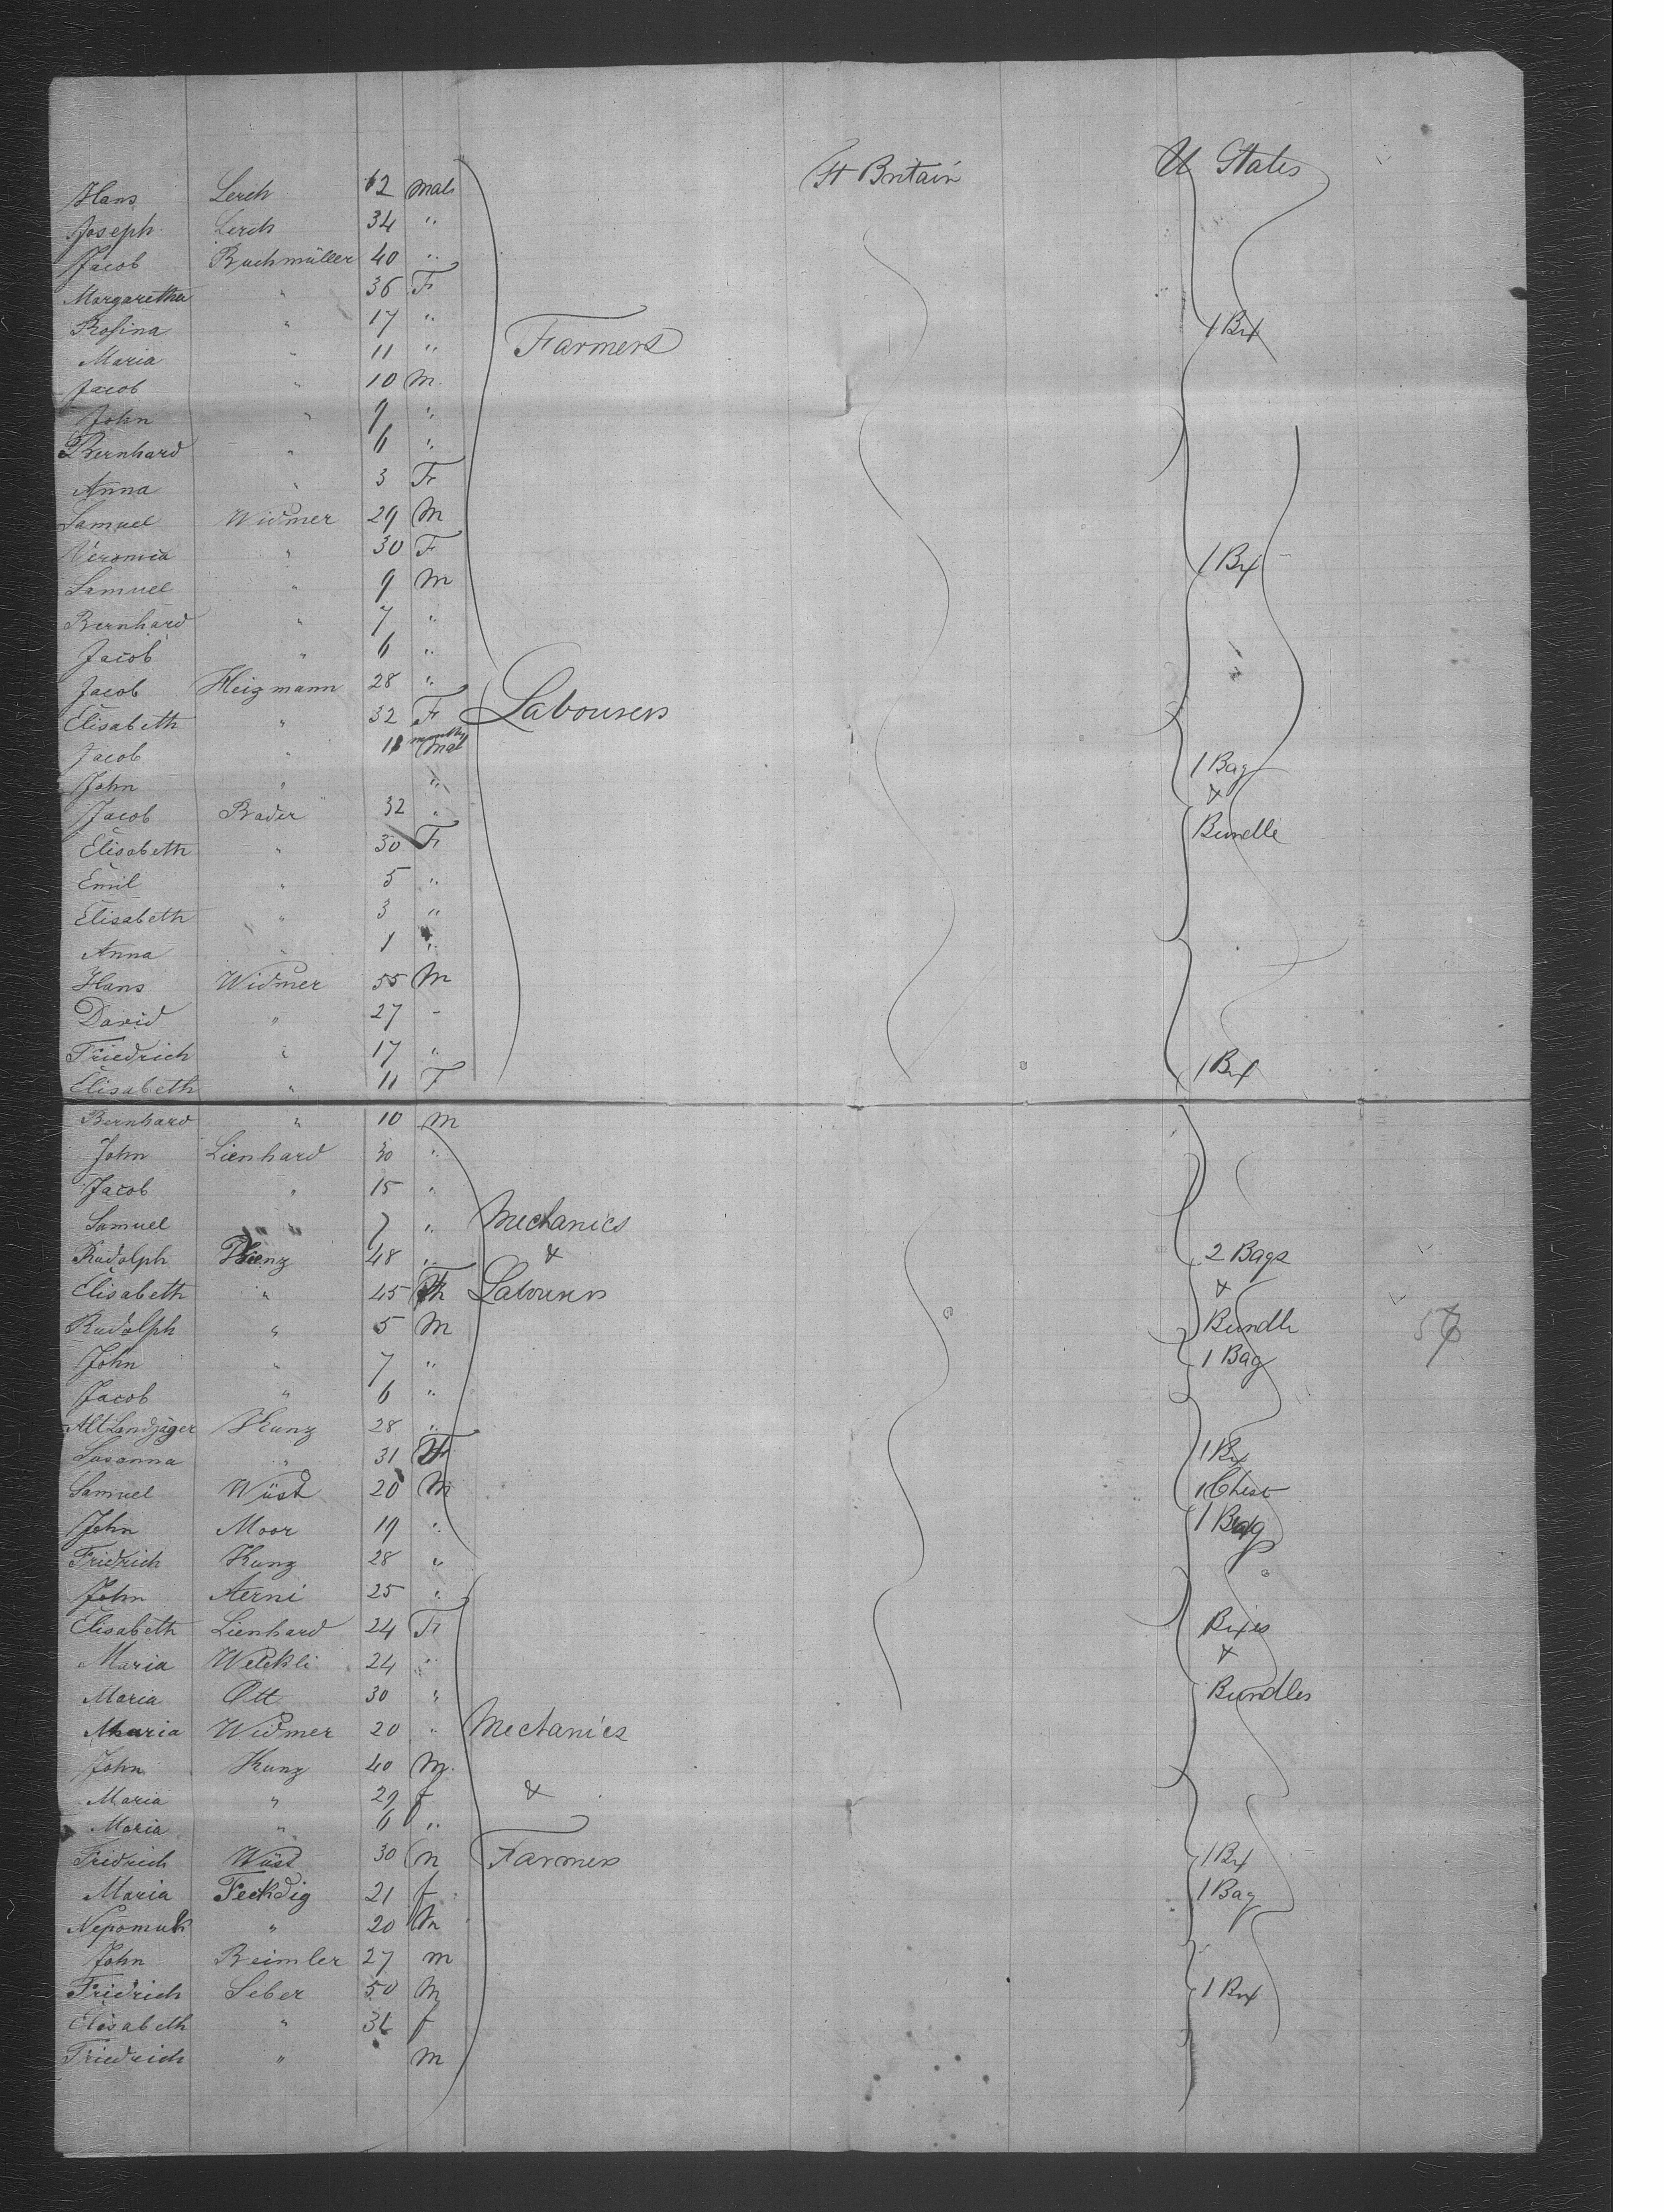 Gt Britain U States
Hans Lerch 62 Male
Joseph Lerch 34 "
Jacob Buchmüller 40 "
Margaretha " 36 F
Rosina " 17 " Farmers 1 Box
Maria " 11 "
Jacob " 10 M
John " 9 "
Bernhard " 6 "
Anna " 3 F
Samuel Widmer 29 M
Veronica " 30 F 1 Box
Samuel " 9 M
Bernhard " 7 "
Jacob " 6 "
Jacob Heizmann 28 "
Elisabeth " 32 F Labourers
Jacob " 11 months Mal 1 Bag
John " " &
Jacob Bader 32 " Bundle
Elisabeth " 30 F
Emil " 5 "
Elisabeth " 3 "
Anna " 1 "
Hans Widmer 55 M
David " 27 "
Friedrich " 17 "
Elisabeth " 11 F 1 Box
Bernhard " 10 M
John Lienhard 30 "
Jacob " 15 "
Samuel " 7 " Mechanics
Rudolph 48 " & 2 Bags
Elisabeth " 45 F Labourers &
Rudolph " 5 M Bundle
John " 7 " 1 Bag
Jacob " 6 "
Alt Landjäger Kunz 28 "
Susanna " 31 F 1 Box
Samuel Wüst 20 M 1 Chest
John Moor 19 " 1 Bag
Fridrich Kunz 28 "
John Aerni 25 "
Elisabeth Lienhard 24 F Boxes
Maria 24 " &
Maria Ott 30 " Bundles
Maria Widmer 20 " Mechanics
John Kunz 40 M
Maria " 29 f &
Maria " 6 "
Fridrich Wüst 30 m Farmers 1 Box
Maria Feckdig 21 f 1 Bag
Nepomuk " 20 m
John Beimler 27 m
Fridrich Seber 50 M 1 Box
Elisabeth " f
Friedrich " m